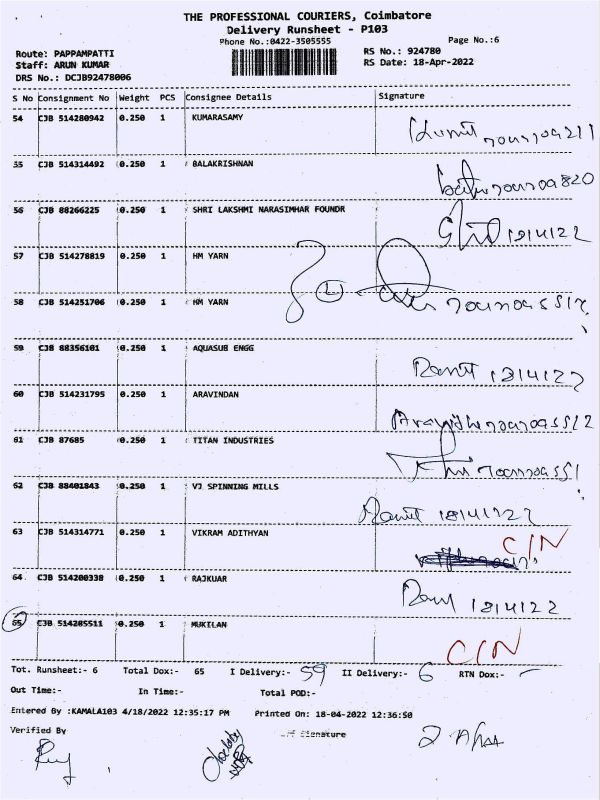 THE PROFESSIONAL COURIERS, Coimbatore
Delivery Runsheet - P103
Phone No.:0422-3505555
Page No.:6
Route: PAPPAMPATTI
RS No.: 924780
Staff: ARUN KUMAR
RS Date: 18-Apr-2022
DRS No.: DCJB92478006
S No Consignment No Weight PCS Consignee Details Signature
54 CJB 514280942 0.250 1 KUMARASAMY
55 CJB 514314492 0.250 1 BALAKRISHNAN
56 CJB 88266225 0.250 1 SHRI LAKSHMI NARASIMHAR FOUNDR
18/4/22
57 CJB 514278819 0.250 1 HM YARN
58 CJB 514251706 0.250 1 HM YARN
59 CJB 88356101 0.250 1 AQUASUB ENGG
18/4/22
60 CJB 514231795 0.250 1 ARAVINDAN
61 CJB 87685 0.250 1 TITAN INDUSTRIES
62 CJB 88401843 0.250 1 VJ SPINNING MILLS
18/4/22
63 CJB 514314771 0.250 1 VIKRAM ADITHYAN
C/N
64 CJB 514200338 0.250 1 RAJKUAR
18/4/22
65 CJB 514285511 0.250 1 MUKILAN
C/N
Tot. Runsheet:- 6 Total Dox:- 65 I Delivery:- 59 II Delivery:- 6 RTN Dox:- -
Out Time:- In Time:- Total POD:-
Entered By :KAMALA103 4/18/2022 12:35:17 PM Printed On: 18-04-2022 12:36:50
Verified By Signature